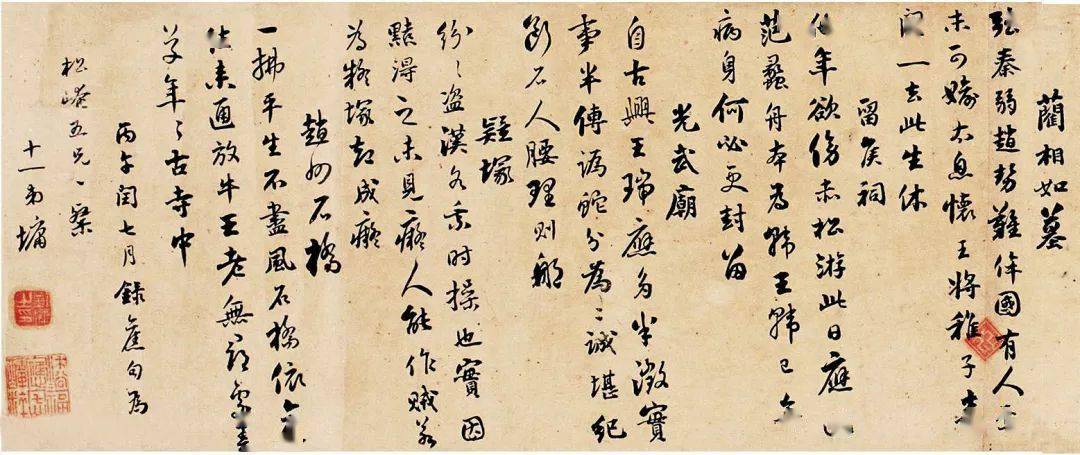 藺相如墓
強秦弱趙勢難侔國有人
未可媮太息懷王將稚子
關一去此生休
留侯祠
年欲傍赤松游此日應
范蠡舟本為韓王韓已
病身何必更封留
光武廟
自古興王瑞應多半徵實
事半傳譌蛇分為二誠堪紀
斷石人腰理則那
疑塚
紛紛盜漢名乘時操也實因
黠得之未見癡人能作賊若
為疑塚却成癡
趙州石橋
一拂平生不盡風石橋依
未通放牛王老無
草年年古寺中
丙午閏七月錄舊句為
松崦五兄一粲
十一弟墉